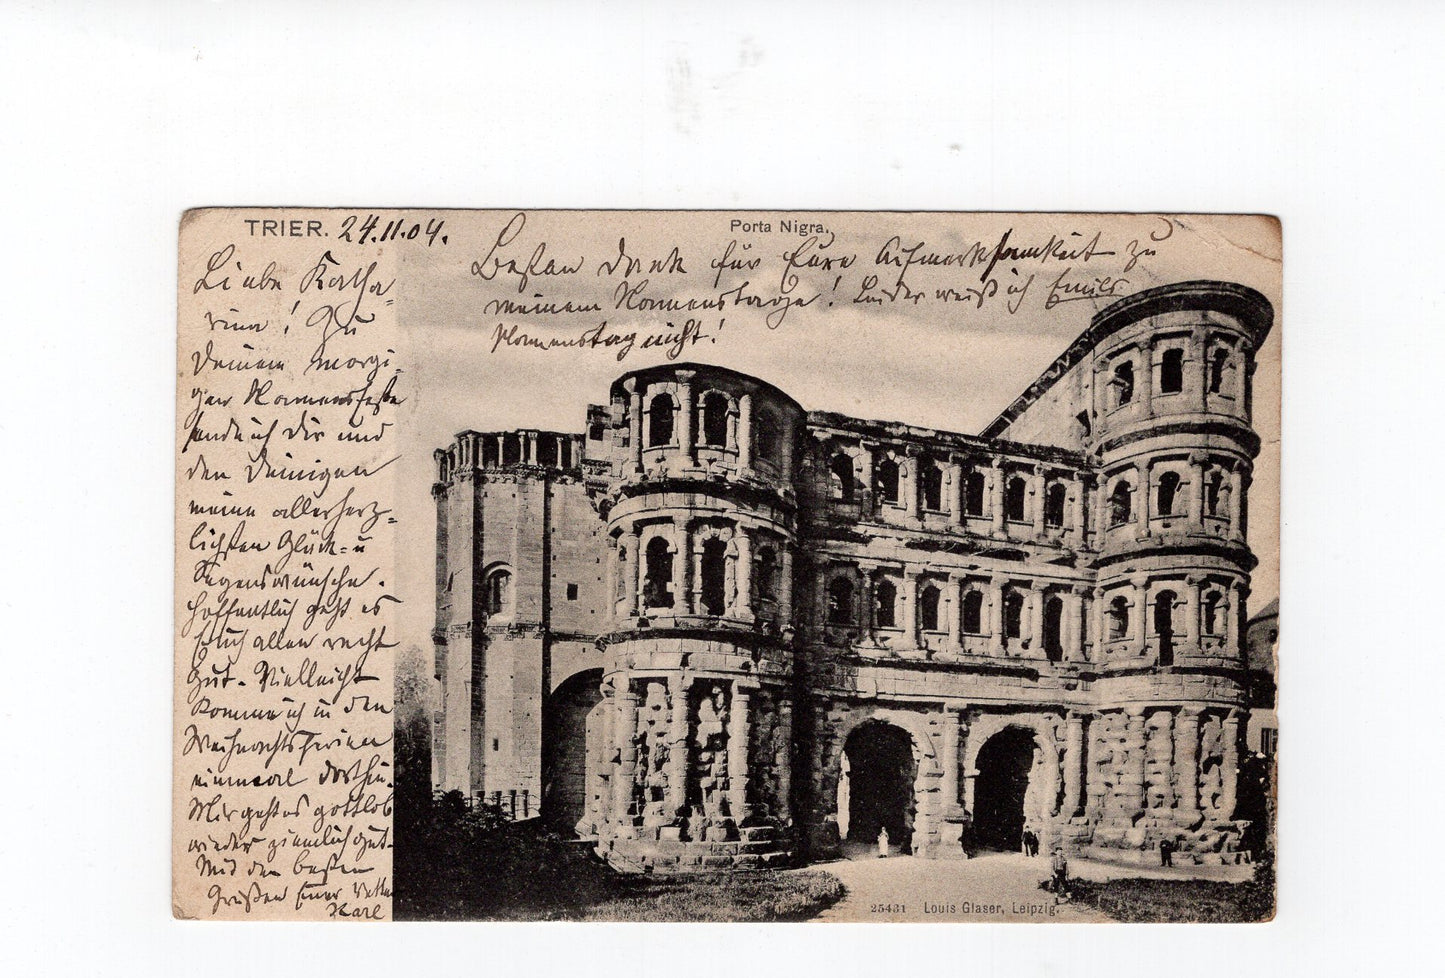 TRIER. 24.11.04.
Porta Nigra.
Liebe Katha-
rina! Zu
Deinem morgi-
gen Namensfeste
sende ich Dir und
den Deinigen
meine allerherz-
lichsten Glück- u
Segenswünsche.
Hoffentlich geht es
Euch allen recht
gut. Vielleicht
komme ich in den
Weihnachtsferien
einmal dorthin.
Mir geht es gottlob
wieder ziemlich gut.
Mit den besten
Grüßen Euer Vetter
Karl
Besten Dank für Eure Aufmerksamkeit zu
meinem Namenstage! Leider weiß ich Emils
Namenstag nicht!
25431 Louis Glaser, Leipzig.